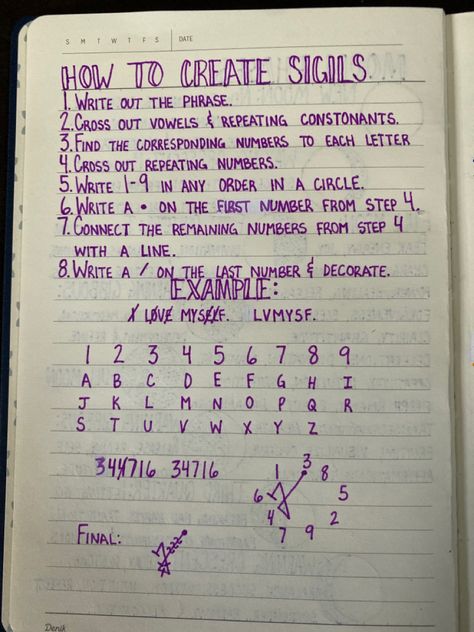 S M T W T F S DATE
HOW TO CREATE SIGILS
1. WRITE OUT THE PHRASE.
2. CROSS OUT VOWELS & REPEATING CONSTONANTS.
3. FIND THE CORRESPONDING NUMBERS TO EACH LETTER
4. CROSS OUT REPEATING NUMBERS.
5. WRITE 1-9 IN ANY ORDER IN A CIRCLE.
6. WRITE A • ON THE FIRST NUMBER FROM STEP 4.
7. CONNECT THE REMAINING NUMBERS FROM STEP 4
WITH A LINE.
8. WRITE A / ON THE LAST NUMBER & DECORATE.
EXAMPLE:
I LOVE MYSELF. LVMYSF.
1 2 3 4 5 6 7 8 9
A B C D E F G H I
J K L M N O P Q R
S T U V W X Y Z
344716 34716
1 3 8
6 5
4 2
7 9
FINAL:
Denik